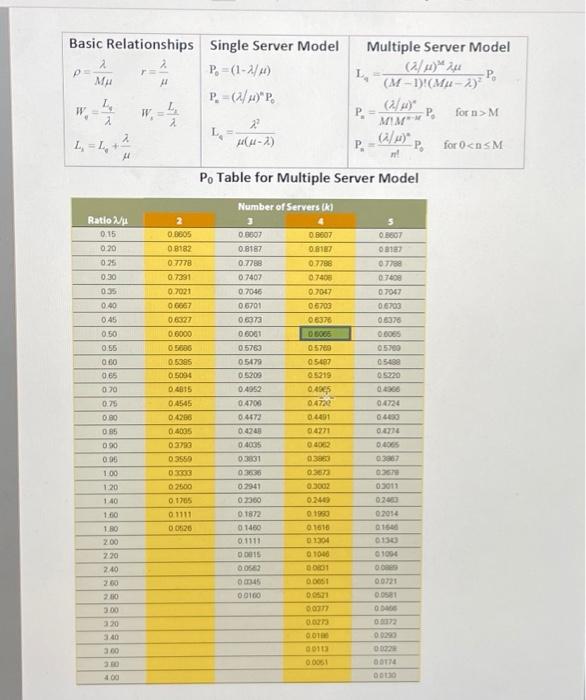 Basic Relationships Single Server Model Multiple Server Model
ρ = λ/Mμ r = λ/μ P₀ = (1-λ/μ) L_q = (λ/μ)^M λμ / (M-1)!(Mμ-λ)² P₀
W_q = L_q/λ W_s = L_s/λ Pₙ = (λ/μ)ⁿ P₀ Pₙ = (λ/μ)ⁿ / M!M^(n-M) P₀ for n>M
L_s = L_q + λ/μ L_q = λ²/μ(μ-λ) Pₙ = (λ/μ)ⁿ / n! P₀ for 0<n≤M
P₀ Table for Multiple Server Model
Number of Servers (k)
Ratio λ/μ 2 3 4 5
0.15 0.8605 0.8607 0.8607 0.8607
0.20 0.8182 0.8187 0.8187 0.8187
0.25 0.7778 0.7788 0.7788 0.7788
0.30 0.7391 0.7407 0.7408 0.7408
0.35 0.7021 0.7046 0.7047 0.7047
0.40 0.6667 0.6701 0.6703 0.6703
0.45 0.6327 0.6373 0.6376 0.6376
0.50 0.6000 0.6061 0.6065 0.6065
0.55 0.5686 0.5763 0.5769 0.5769
0.60 0.5385 0.5479 0.5487 0.5488
0.65 0.5094 0.5209 0.5219 0.5220
0.70 0.4815 0.4952 0.4965 0.4966
0.75 0.4545 0.4706 0.4722 0.4724
0.80 0.4286 0.4472 0.4491 0.4493
0.85 0.4035 0.4248 0.4271 0.4274
0.90 0.3793 0.4035 0.4062 0.4065
0.95 0.3559 0.3831 0.3863 0.3867
1.00 0.3333 0.3636 0.3673 0.3678
1.20 0.2500 0.2941 0.3002 0.3011
1.40 0.1765 0.2360 0.2449 0.2463
1.60 0.1111 0.1872 0.1993 0.2014
1.80 0.0526 0.1460 0.1616 0.1646
2.00 0.1111 0.1304 0.1343
2.20 0.0815 0.1046 0.1094
2.40 0.0562 0.0831 0.0889
2.60 0.0345 0.0651 0.0721
2.80 0.0160 0.0521 0.0581
3.00 0.0377 0.0466
3.20 0.0273 0.0372
3.40 0.0186 0.0293
3.60 0.0113 0.0228
3.80 0.0051 0.0174
4.00 0.0130